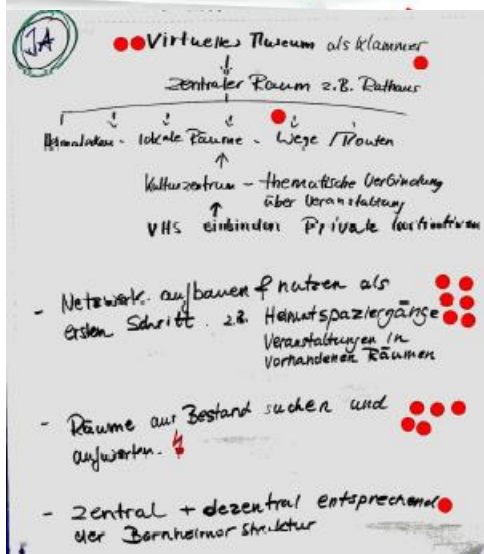 JA
Virtuelles Museum als Klammer
Zentraler Raum z.B. Rathaus
lokale Räume - Wege / Routen
Kulturzentrum - thematische Verbindung
über Veranstaltung
VHS einbinden Private
- Netzwerk aufbauen & nutzen als
ersten Schritt. z.B. Heimatspaziergänge
Veranstaltungen in
vorhandenen Räumen
- Räume aus Bestand suchen und
aufwerten.
- zentral + dezentral entsprechend
der Bornheimer Struktur